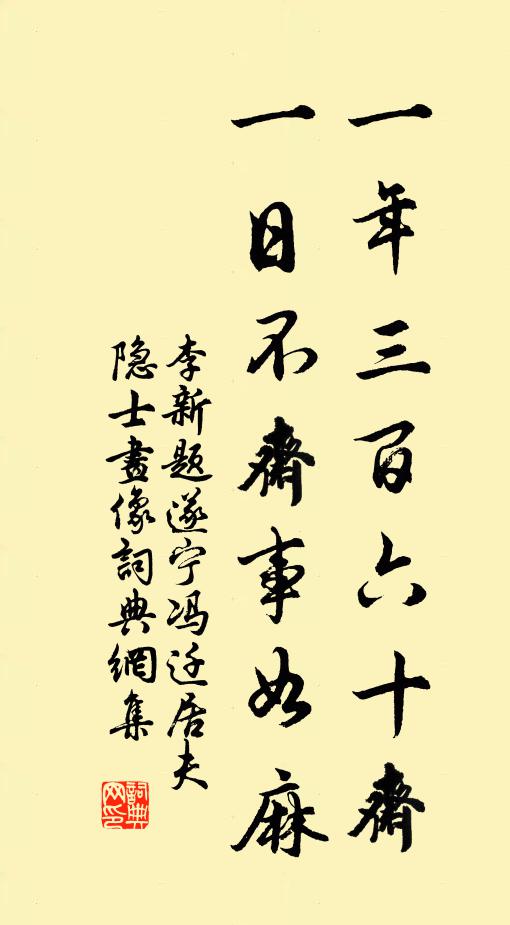 一年三百六十齋
一日不齋事如麻
李新題遂宁冯迁居夫
隐士畫像詞典網集
詞典网印